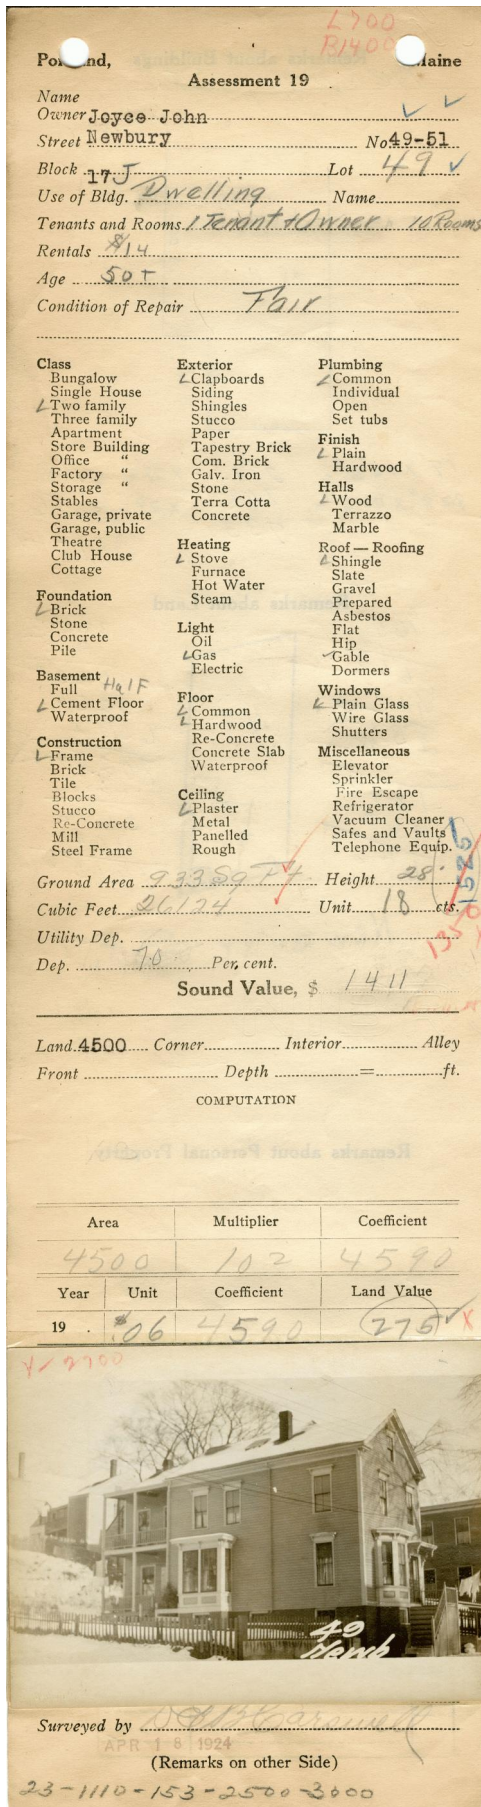 L700
B1400
Portland, Maine
Assessment 19
Name
Owner Joyce John
Street Newbury No 49-51
Block 17J Lot 49
Use of Bldg. Dwelling Name
Tenants and Rooms 1 Tenant + Owner 10 Rooms
Rentals $14
Age 50+
Condition of Repair Fair
Class
Bungalow
Single House
✓ Two family
Three family
Apartment
Store Building
Office "
Factory "
Storage "
Stables
Garage, private
Garage, public
Theatre
Club House
Cottage
Foundation
✓ Brick
Stone
Concrete
Pile
Basement
Full Half
✓ Cement Floor
Waterproof
Construction
✓ Frame
Brick
Tile
Blocks
Stucco
Re-Concrete
Mill
Steel Frame
Exterior
✓ Clapboards
Siding
Shingles
Stucco
Paper
Tapestry Brick
Com. Brick
Galv. Iron
Stone
Terra Cotta
Concrete
Heating
✓ Stove
Furnace
Hot Water
Steam
Light
Oil
✓ Gas
Electric
Floor
✓ Common
✓ Hardwood
Re-Concrete
Concrete Slab
Waterproof
Ceiling
✓ Plaster
Metal
Panelled
Rough
Plumbing
✓ Common
Individual
Open
Set tubs
Finish
✓ Plain
Hardwood
Halls
✓ Wood
Terrazzo
Marble
Roof — Roofing
✓ Shingle
Slate
Gravel
Prepared
Asbestos
Flat
Hip
✓ Gable
Dormers
Windows
✓ Plain Glass
Wire Glass
Shutters
Miscellaneous
Elevator
Sprinkler
Fire Escape
Refrigerator
Vacuum Cleaner
Safes and Vaults
Telephone Equip.
1525
1350
Ground Area 933 Sq Ft Height 28'
Cubic Feet 26124 Unit 18 cts.
Utility Dep.
Dep. 70 Per cent.
Sound Value, $ 1411
Land 4500 Corner Interior Alley
Front Depth = ft.
COMPUTATION
Area Multiplier Coefficient
4500 102 4590
Year Unit Coefficient Land Value
19 . $.06 4590 275
2700
49
Surveyed by
APR 18 1924
(Remarks on other Side)
23-1110-153-2500-3000